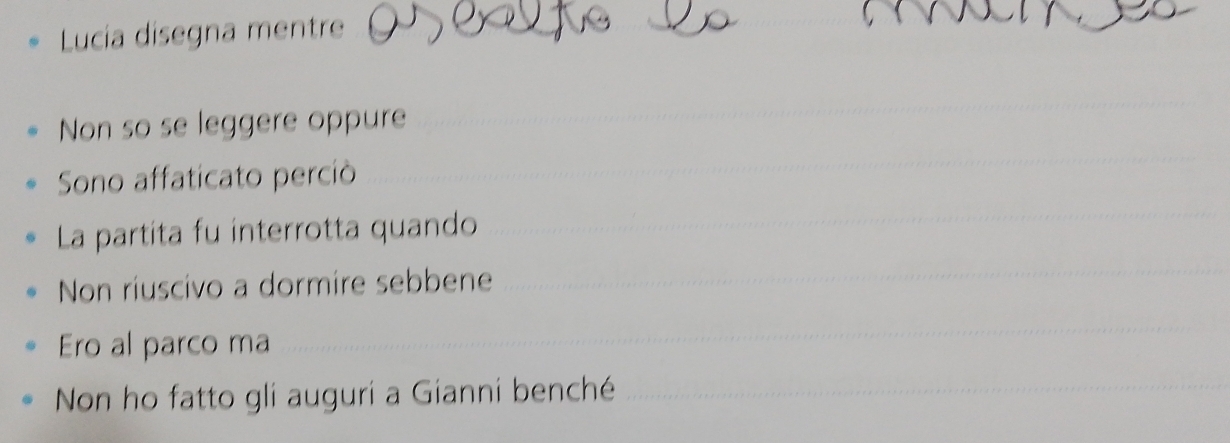 • Lucia disegna mentre ascolta la musica
• Non so se leggere oppure
• Sono affaticato perciò
• La partita fu interrotta quando
• Non riuscivo a dormire sebbene
• Ero al parco ma
• Non ho fatto gli auguri a Gianni benché